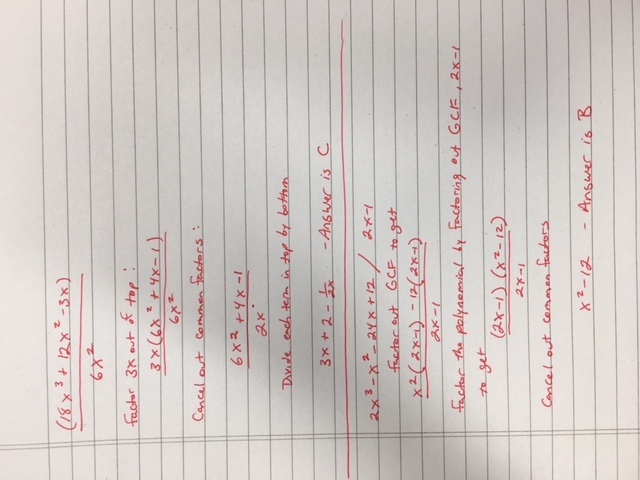 (18x³ + 12x² - 3x)
6x²
Factor 3x out of top :
3x(6x² + 4x - 1)
6x²
Cancel out common factors :
6x² + 4x - 1
2x
Divide each term in top by bottom
3x + 2 - 1/2x - Answer is C
2x³ - x² - 24x + 12 / 2x - 1
Factor out GCF to get
x²(2x-1) - 12(2x-1)
2x - 1
Factor the polynomial by factoring out GCF, 2x-1
to get
(2x-1)(x²-12)
2x-1
Cancel out common factors
x² - 12 - Answer is B